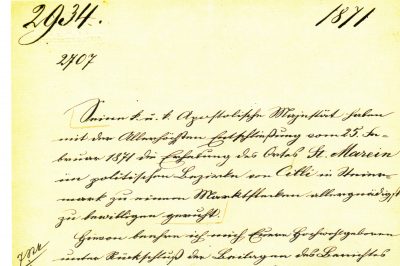 2934.
1871
2707
Seine k. u. k. Apostolische Majestät haben
mit der Allerhöchsten Entschließung vom 25. Fe-
bruar 1871 die Erhebung des Ortes St. Marein
im politischen Bezirke von Cilli in Steier-
mark zu einem Marktflecken allergnädigst
zu bewilligen geruht.
Hievon beehre ich mich Euere Hochwohlgeboren
unter Rückschluß der Beilagen des Berichtes